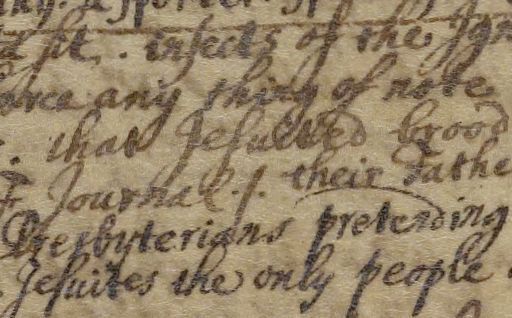 insects of the
any thing of note
that Jesuited brood
Journal . their Fathe
Presbyterians pretending
Jesuites the only people